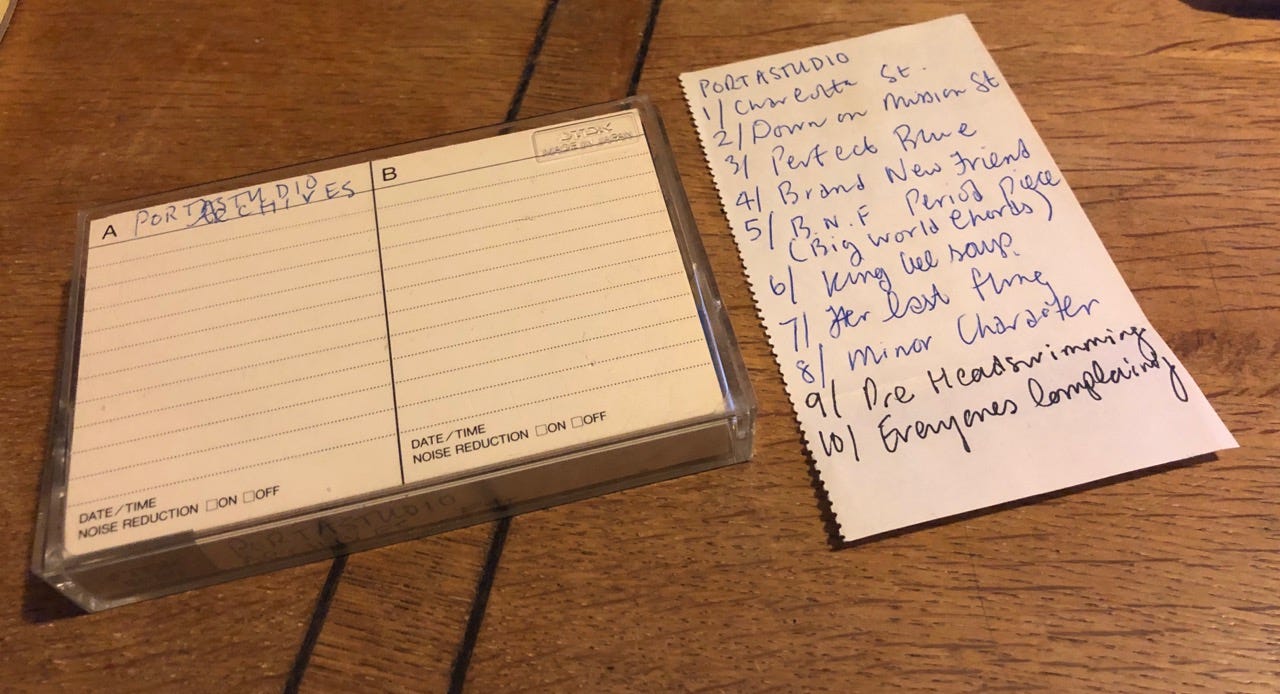 A
PORTASTUDIO
ARCHIVES
B
TDK
MADE IN JAPAN
DATE/TIME
NOISE REDUCTION □ON □OFF
DATE/TIME
NOISE REDUCTION □ON □OFF
PORTASTUDIO
PORTASTUDIO
1/ St.
2/ Down on Mission St
3/ Perfect Blue
4/ Brand New Friend
5/ B.N.F Period Piece
(Big World Chords)
6/ King soup.
7/ Her last fling
8/ Minor Character
9/ Pre Headswimming
10/ Everyones Complaining